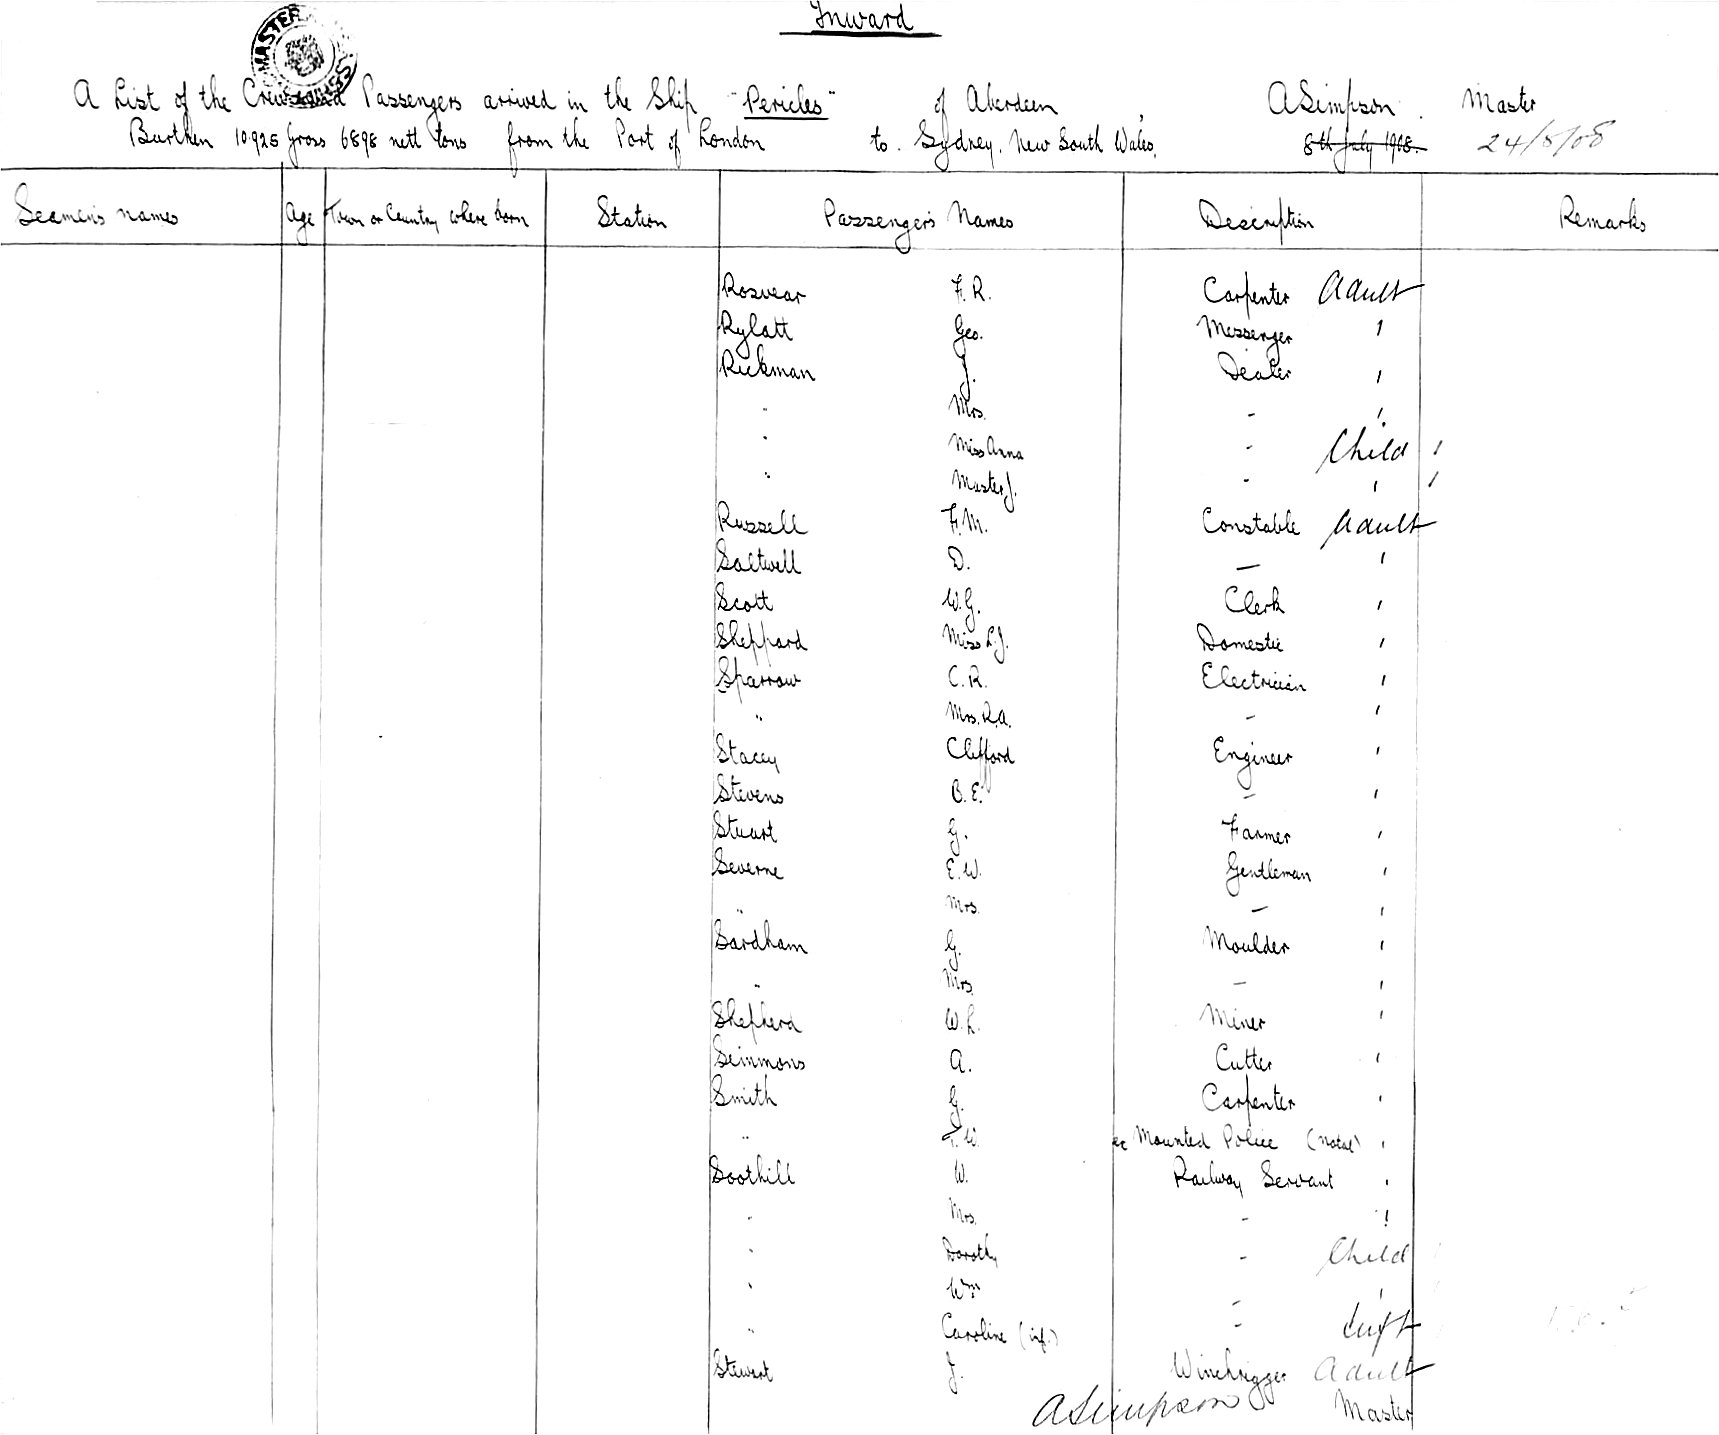 Inward
A List of the Crew and Passengers arrived in the Ship "Pericles" of Aberdeen, A Simpson. Master
Burthen 10.925 Gross 6898 nett tons from the Port of London to. Sydney. New South Wales. 8th July 1908. 24/8/08
Seamen's names Age Town or Country where born Station Passenger's Names Description Remarks
Rosvear F. R. Carpenter Adult
Rylatt Geo. Messenger "
Rickman J. Dealer "
" Mrs. - "
" Miss Anna - Child "
" Master J. - " "
Russell F. M. Constable Adult
Saltwell D. — "
Scott W. G. Clerk "
Sheppard Miss L. J. Domestic "
Sparrow C. R. Electrician "
" Mrs. R. A. - "
Stacey Clifford Engineer "
Stevens B. E. - "
Stuart G. Farmer "
Severne E. W. Gentleman "
" Mrs. — "
Sardham G. Moulder "
" Mrs. - "
Shepherd W. L. Miner "
Simmons A. Cutter "
Smith G. Carpenter "
" W. Mounted Police (Natal) "
Soothill W. Railway Servant "
" Mrs. - "
" Dorothy - Child
" Wm - "
" Caroline (inf.) - Inft
Stewart J. Winchrigger Adult
A Simpson Master